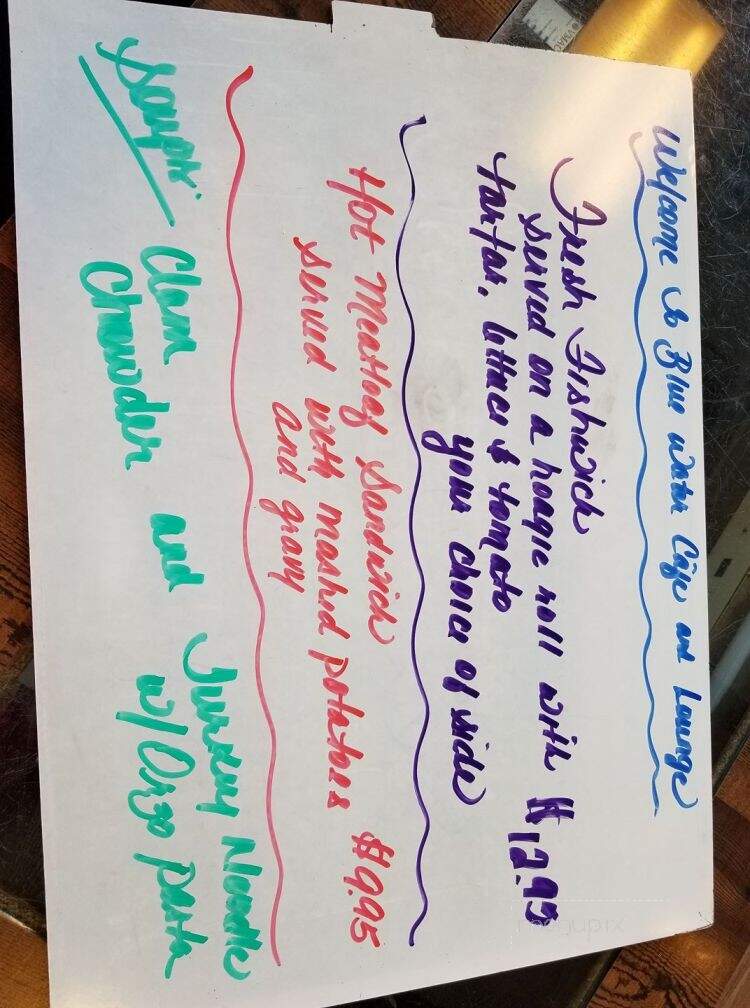 Welcome to Blue Water Cafe and Lounge
Fresh Fishwich
served on a hoagie roll with $12.95
tartar, lettuce & tomato
your choice of side
Hot Meatloaf Sandwich
served with mashed potatoes $9.95
and gravy
Soups: Clam
Chowder and Turkey Noodle
w/ Orzo Pasta